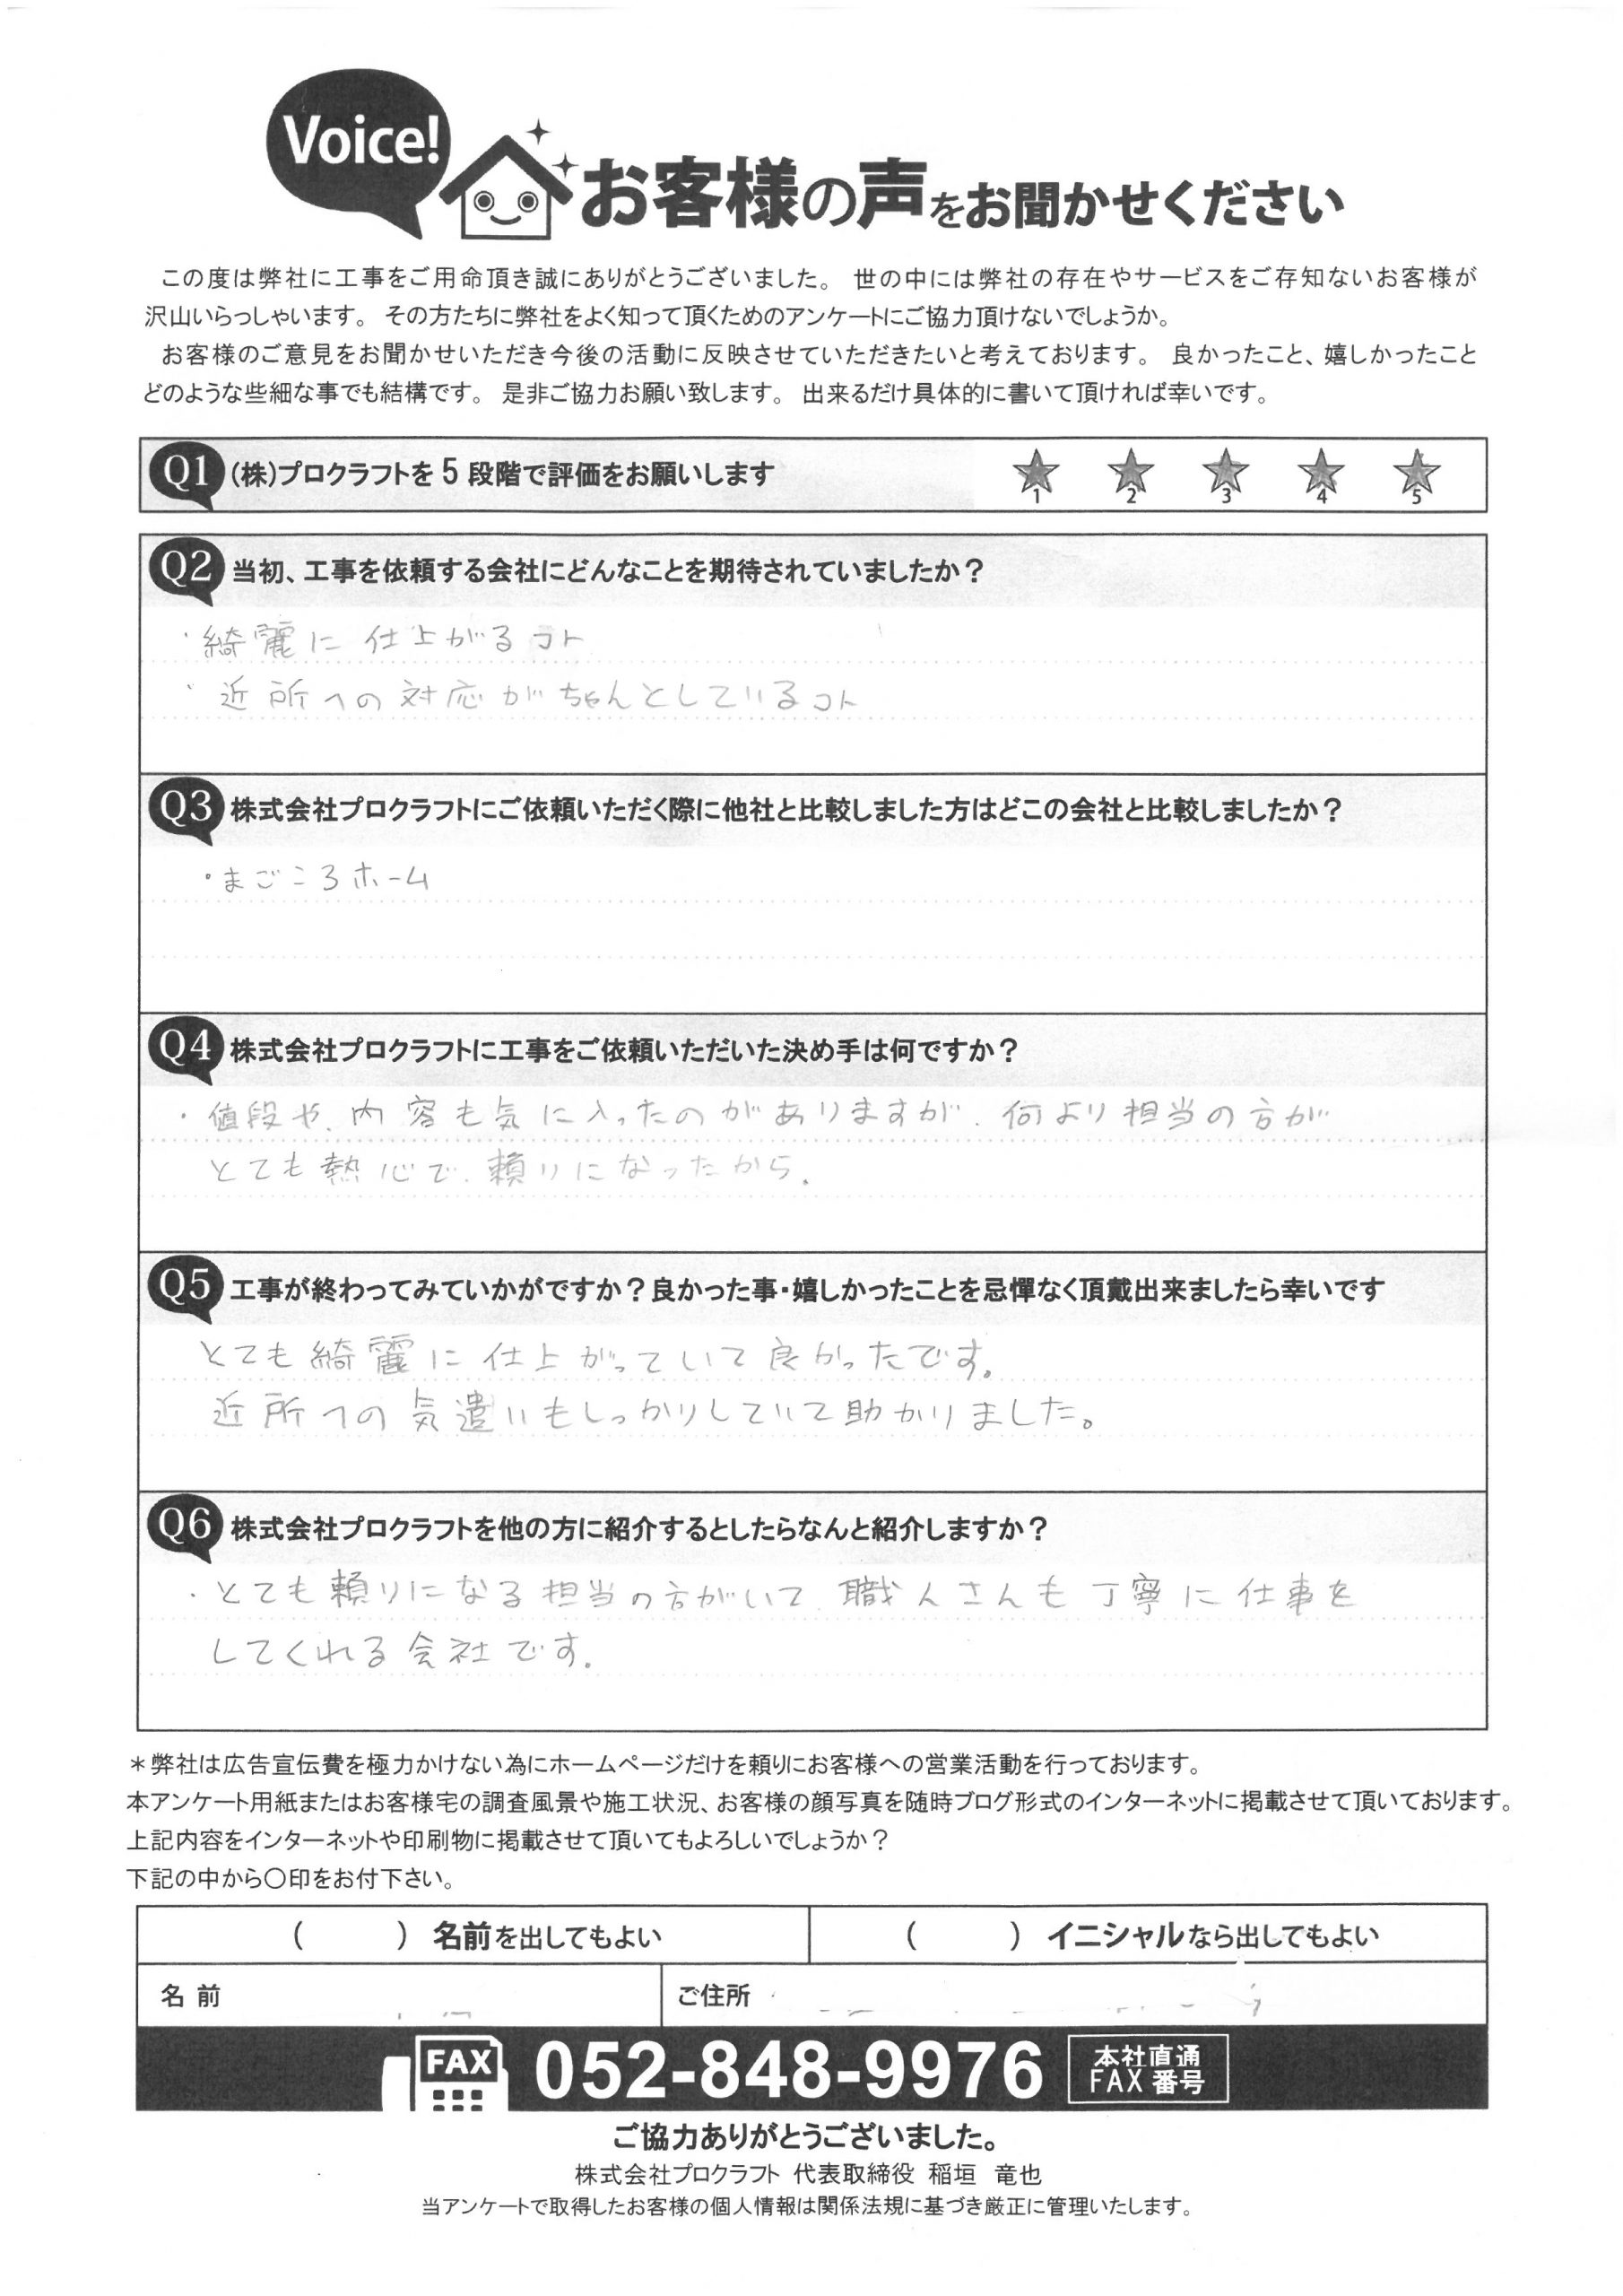 Voice!
お客様の声をお聞かせください
この度は弊社に工事をご用命頂き誠にありがとうございました。 世の中には弊社の存在やサービスをご存知ないお客様が
沢山いらっしゃいます。 その方たちに弊社をよく知って頂くためのアンケートにご協力頂けないでしょうか。
お客様のご意見をお聞かせいただき今後の活動に反映させていただきたいと考えております。 良かったこと、嬉しかったこと
どのような些細な事でも結構です。 是非ご協力お願い致します。 出来るだけ具体的に書いて頂ければ幸いです。
Q1 (株)プロクラフトを 5 段階で評価をお願いします ★ ★ ★ ★ ★
1 2 3 4 5
Q2 当初、工事を依頼する会社にどんなことを期待されていましたか？
・綺麗に 仕上がるコト
・近所への対応がちゃんとしているコト
Q3 株式会社プロクラフトにご依頼いただく際に他社と比較しました方はどこの会社と比較しましたか？
・まごころホーム
Q4 株式会社プロクラフトに工事をご依頼いただいた決め手は何ですか？
・値段や、内容も気に入ったのがありますが、何より担当の方が
とても熱心で、頼りになったから。
Q5 工事が終わってみていかがですか？良かった事・嬉しかったことを忌憚なく頂戴出来ましたら幸いです
とても綺麗に仕上がっていて良かったです。
近所への気遣いもしっかりしていて助かりました。
Q6 株式会社プロクラフトを他の方に紹介するとしたらなんと紹介しますか？
・とても頼りになる担当の方がいて、職人さんも丁寧に仕事を
してくれる会社です。
＊弊社は広告宣伝費を極力かけない為にホームページだけを頼りにお客様への営業活動を行っております。
本アンケート用紙またはお客様宅の調査風景や施工状況、お客様の顔写真を随時ブログ形式のインターネットに掲載させて頂いております。
上記内容をインターネットや印刷物に掲載させて頂いてもよろしいでしょうか？
下記の中から〇印をお付下さい。
（　　　）名前を出してもよい （　　　）イニシャルなら出してもよい
名 前 ご住所
FAX 052-848-9976 本社直通
FAX 番号
ご協力ありがとうございました。
株式会社プロクラフト 代表取締役 稲垣 竜也
当アンケートで取得したお客様の個人情報は関係法規に基づき厳正に管理いたします。